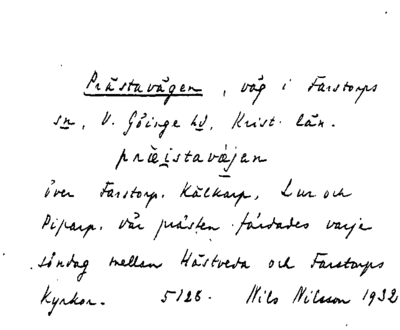 Prästavägen, väg i Farstorps
sn, V. Göinge hd, Krist. län.
präistavæjan
över Farstorp, Kälkarp, Lur och
Piparp, vår prästen färdades varje
söndag mellan Hästveda och Farstorps
Kyrkor. 5128. Nils Nilsson 1932